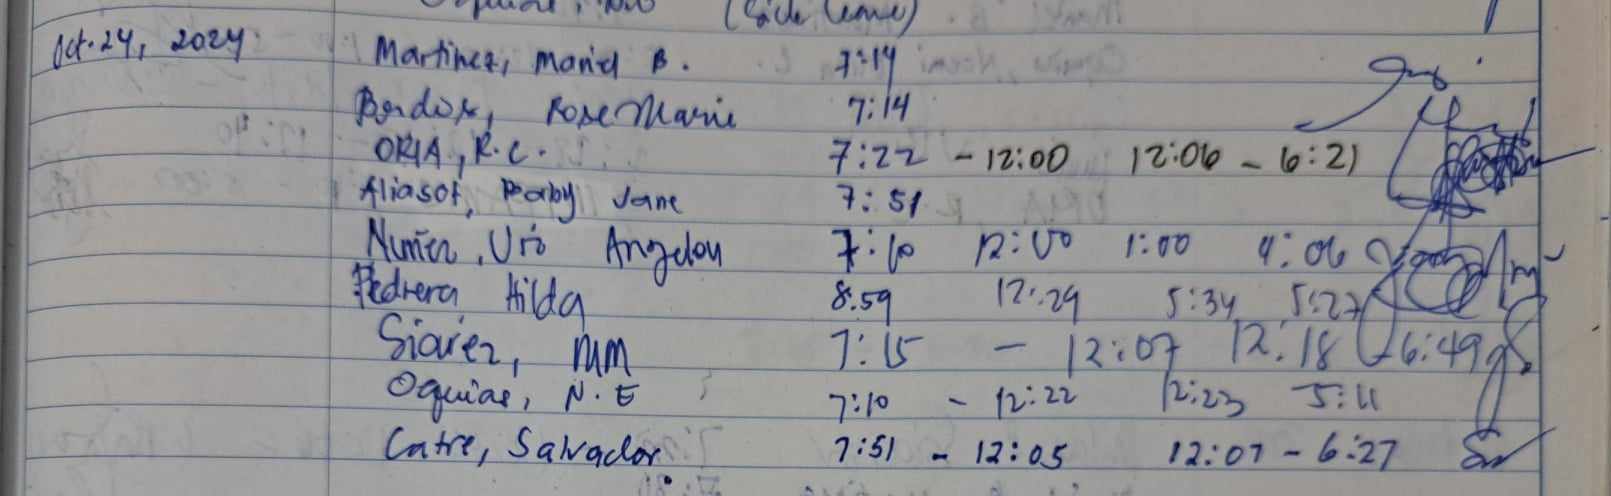 (Sick leave)
Oct. 24, 2024 Martinez, Mariel B. 7:14
Rose Marie 7:14
ORIA, R.C. 7:22 - 12:00 12:06 - 6:21
Jane 7:51
Angelou 7:10 12:00 1:00 4:06
Pedrera Hilda 8:59 12:29 5:34 5:27
Siarez, MM 7:15 - 12:07 12:18 6:49
Oquias, N.E 7:10 - 12:22 12:23 5:11
Catre, Salvador 7:51 - 12:05 12:07 - 6:27